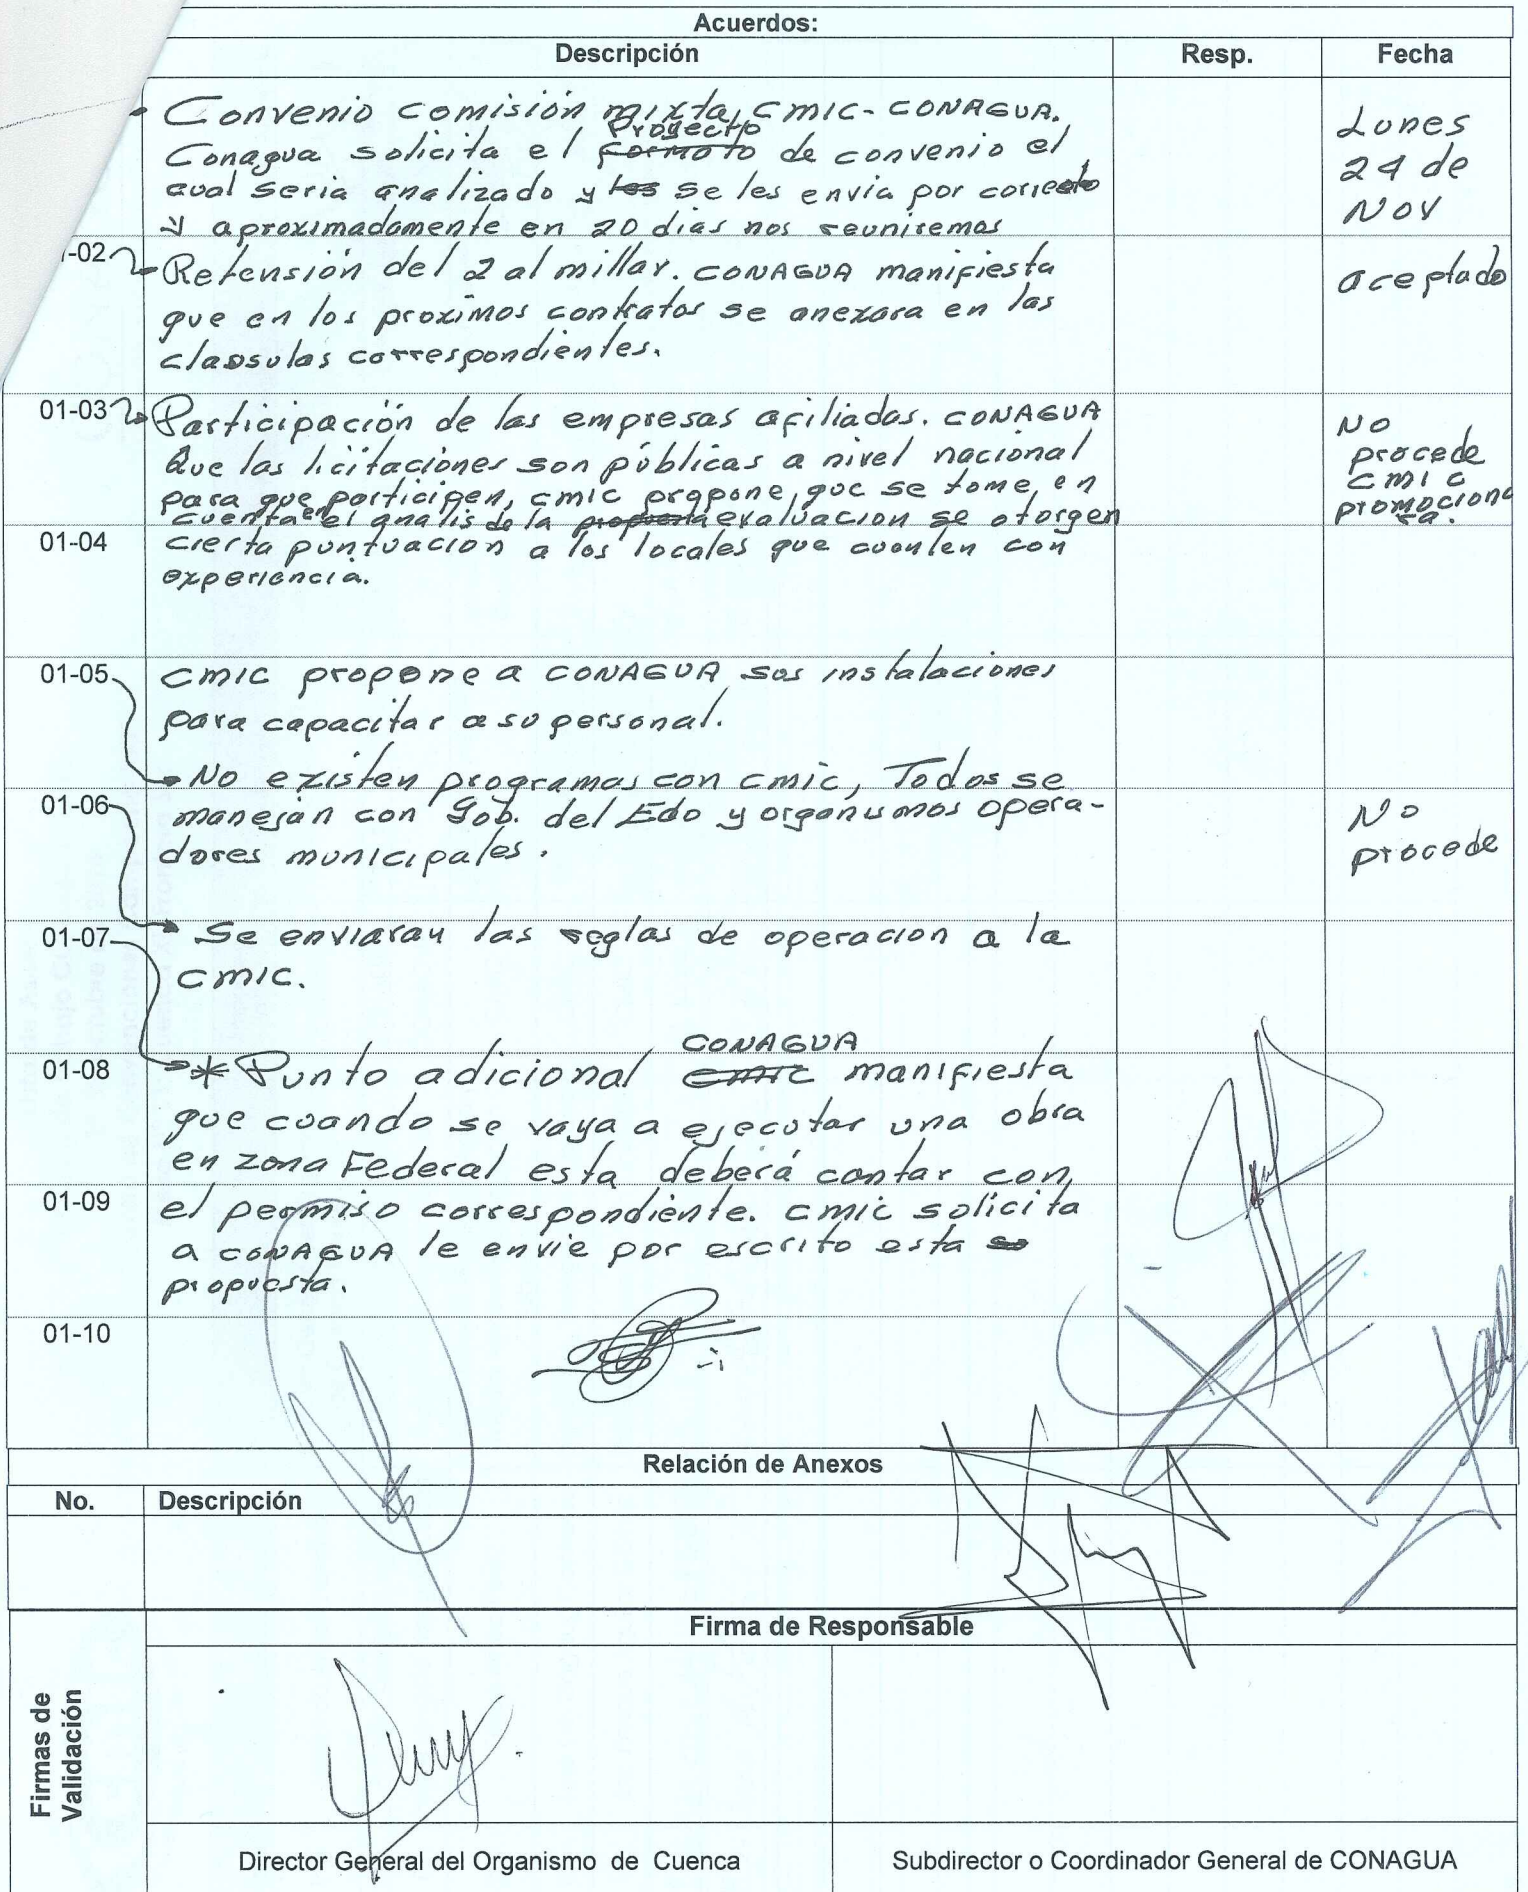 Acuerdos:
Descripción Resp. Fecha
Convenio comisión mixta, CMIC-CONAGUA. Lunes
Conagua solicita el formato Proyecto de convenio el 24 de
cual seria analizado y los se les envia por correo Nov
y aproximadamente en 20 dias nos reuniremos
-02 Retensión del 2 al millar. CONAGUA manifiesta aceptado
que en los proximos contratos se anexara en las
claosulas correspondientes.
01-03 Participación de las empresas afiliadas. CONAGUA No
Que las licitaciones son públicas a nivel nacional procede
para que participen, CMIC propone, que se tome en CMIC
cuenta en el analis de la propuesta evaluacion se otorgen promociona
01-04 cierta puntuacion a los locales que cuenten con ra.
experiencia.
01-05 CMIC propone a CONAGUA sus instalaciones
para capacitar a su personal.
No existen programas con CMIC, Todos se
01-06 manejan con Gob. del Edo y organismos opera- No
dores municipales. procede
01-07 Se enviaran las reglas de operacion a la
CMIC.
CONAGUA
01-08 * Punto adicional CMIC manifiesta
que cuando se vaya a ejecutar una obra
en zona Federal esta deberá contar con
01-09 el permiso correspondiente. CMIC solicita
a CONAGUA le envie por escrito esta
propuesta.
01-10
Relación de Anexos
No. Descripción
Firma de Responsable
Firmas de
Validación
Director General del Organismo de Cuenca Subdirector o Coordinador General de CONAGUA